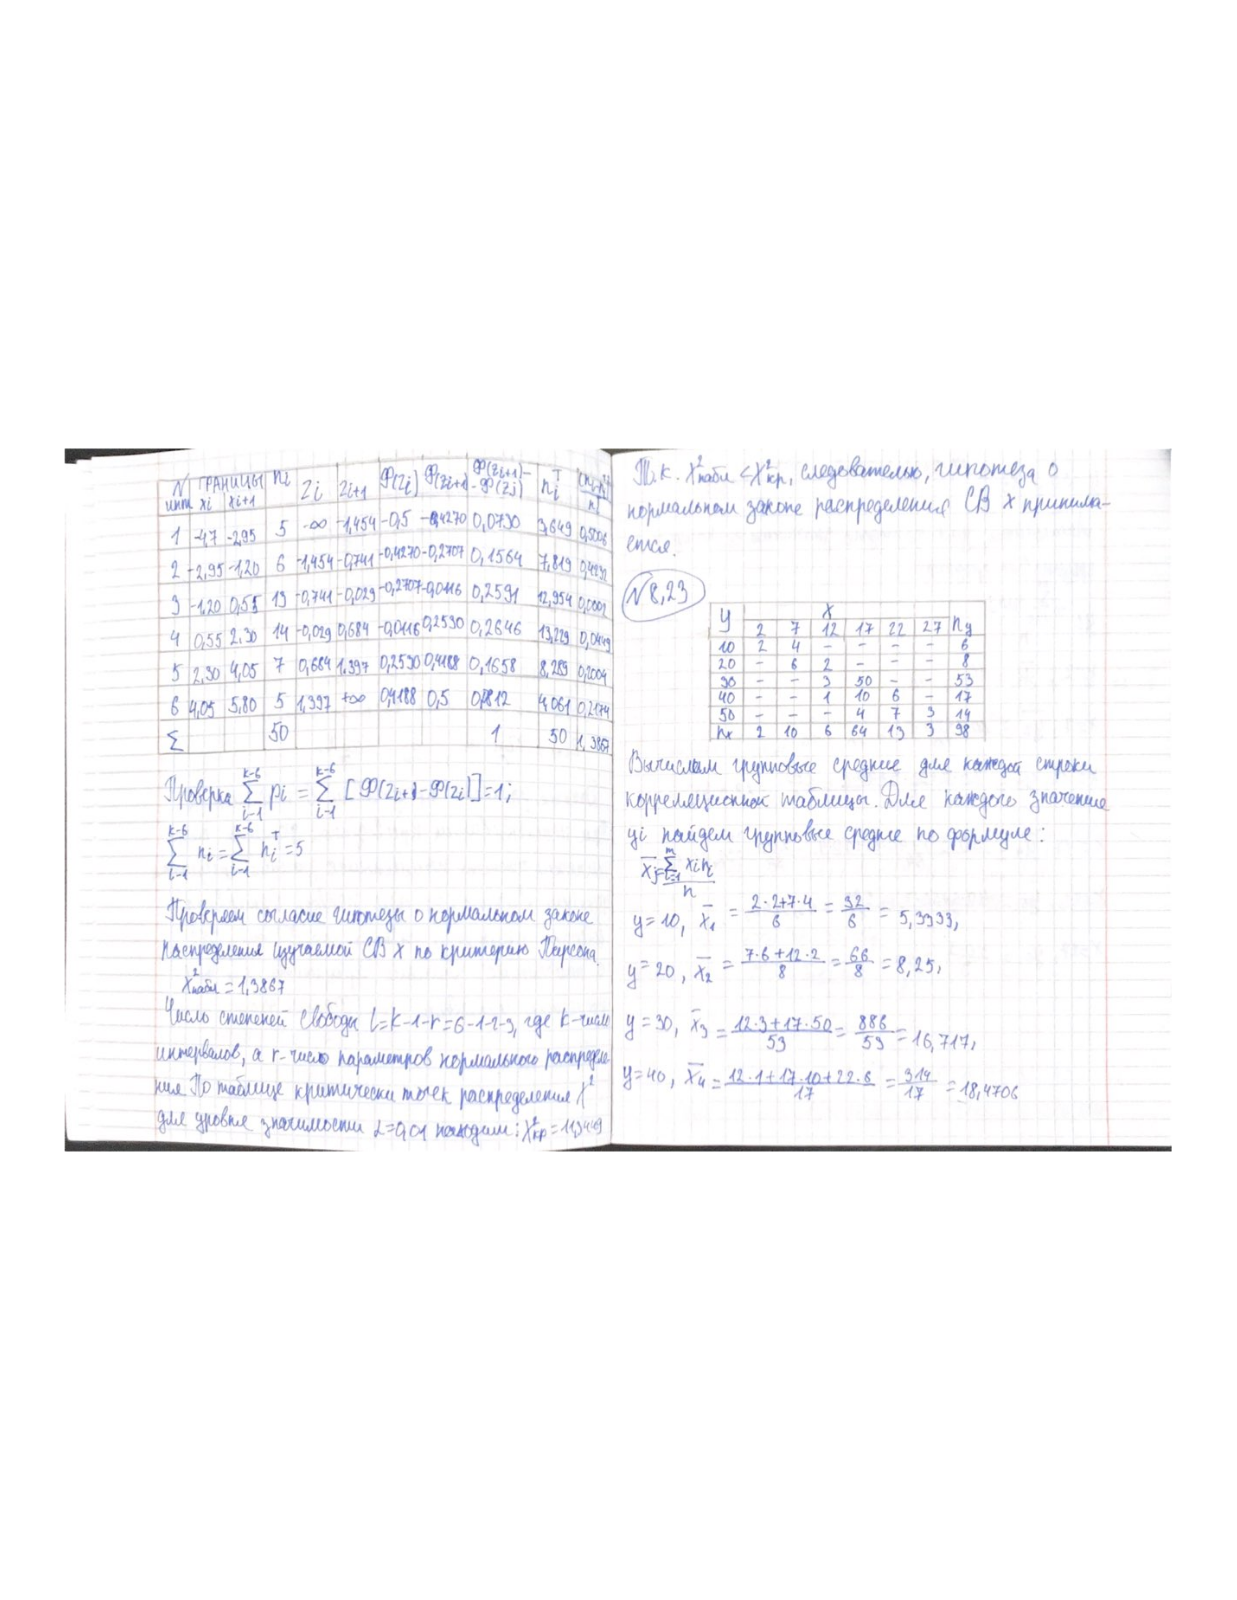 N инт ГРАНИЦЫ xi xi+1 ni Zi Zi+1 Ф(Zi) Ф(Zi+1) Ф(Zi+1)-Ф(Zi) niᵀ
1 -4,7 -2,95 5 -∞ -1,454 -0,5 -0,4270 0,0730 3,649 0,5006
2 -2,95 -1,20 6 -1,454 -0,741 -0,4270 -0,2707 0,1564 7,819 0,4232
3 -1,20 0,55 13 -0,741 -0,029 -0,2707 -0,0116 0,2591 12,954 0,0002
4 0,55 2,30 14 -0,029 0,684 -0,0116 0,2530 0,2646 13,229 0,0449
5 2,30 4,05 7 0,684 1,397 0,2530 0,4188 0,1658 8,289 0,2004
6 4,05 5,80 5 1,397 +∞ 0,4188 0,5 0,0812 4,061 0,2174
Σ 50 1 50 1,3867
Проверка Σ pi = Σ [Ф(Zi+1)-Ф(Zi)]=1;
Σ ni = Σ niᵀ = 5
Проверяем согласие гипотезы о нормальном законе
распределения изучаемой СВ X по критерию Пирсона.
X²набл = 1,3867
Число степеней свободы l=k-1-r=6-1-2=3, где k-число
интервалов, а r-число параметров нормального распределе-
ния. По таблице критически точек распределения X²
для уровня значимости α=0,01 находим: X²кр=11,3449
Т.к. X²набл < X²кр, следовательно, гипотеза о
нормальном законе распределения СВ X принима-
ется.
N8,23
y X
2 7 12 17 22 27 ny
10 2 4 - - - - 6
20 - 6 2 - - - 8
30 - - 3 50 - - 53
40 - - 1 10 6 - 17
50 - - - 4 7 3 14
nx 2 10 6 64 13 3 98
Вычислим групповые средние для каждой строки
корреляционной таблицы. Для каждого значения
yi найдем групповые средние по формуле:
x̄j = Σ xi ni / n
y=10, x̄1 = (2·2+7·4)/6 = 32/6 = 5,3333,
y=20, x̄2 = (7·6+12·2)/8 = 66/8 = 8,25,
y=30, x̄3 = (12·3+17·50)/53 = 886/53 = 16,717,
y=40, x̄4 = (12·1+17·10+22·6)/17 = 314/17 = 18,4706